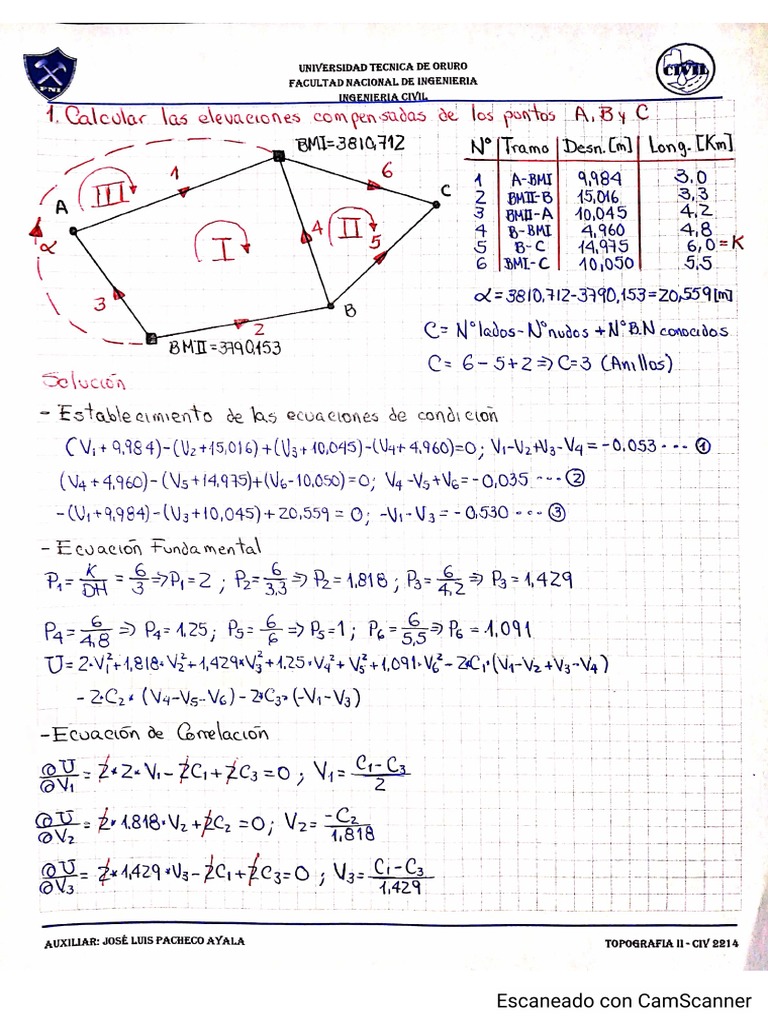 UNIVERSIDAD TECNICA DE ORURO
FACULTAD NACIONAL DE INGENIERIA
INGENIERIA CIVIL
FNI
CIVIL
1. Calcular las elevaciones compensadas de los puntos A, B y C
BMI=3810,712
1
6
C
A
III
α
I
4
II
5
3
B
2
BMII=3790,153
Nº Tramo Desn.[m] Long.[Km]
1 A-BMI 9,984 3,0
2 BMII-B 15,016 3,3
3 BMII-A 10,045 4,2
4 B-BMI 4,960 4,8
5 B-C 14,975 6,0=K
6 BMI-C 10,050 5,5
α=3810,712-3790,153=20,559[m]
C=NºLados-Nºnudos+NºB.N conocidos
C= 6-5+2⇒C=3 (Anillos)
Solución
- Establecimiento de las ecuaciones de condición
(V1+9,984)-(V2+15,016)+(V3+10,045)-(V4+4,960)=0; V1-V2+V3-V4=-0,053 --- ①
(V4+4,960)-(V5+14,975)+(V6-10,050)=0; V4-V5+V6=-0,035 --- ②
-(V1+9,984)-(V3+10,045)+20,559=0; -V1-V3=-0,530 --- ③
- Ecuación Fundamental
P1=K/DH=6/3⇒P1=2; P2=6/3,3⇒P2=1,818; P3=6/4,2⇒P3=1,429
P4=6/4,8⇒P4=1,25; P5=6/6⇒P5=1; P6=6/5,5⇒P6=1,091
U=2·V1²+1,818·V2²+1,429*V3²+1,25·V4²+V5²+1,091·V6²-2·C1·(V1-V2+V3-V4)
-2·C2*(V4-V5-V6)-2*C3*(-V1-V3)
- Ecuación de Correlación
∂U/∂V1=2*2*V1-2C1+2C3=0; V1=C1-C3/2
∂U/∂V2=2*1.818·V2+2C2=0; V2=-C2/1,818
∂U/∂V3=2*1,429*V3-2C1+2C3=0; V3=C1-C3/1,429
AUXILIAR: JOSÉ LUIS PACHECO AYALA
TOPOGRAFIA II - CIV 2214
Escaneado con CamScanner